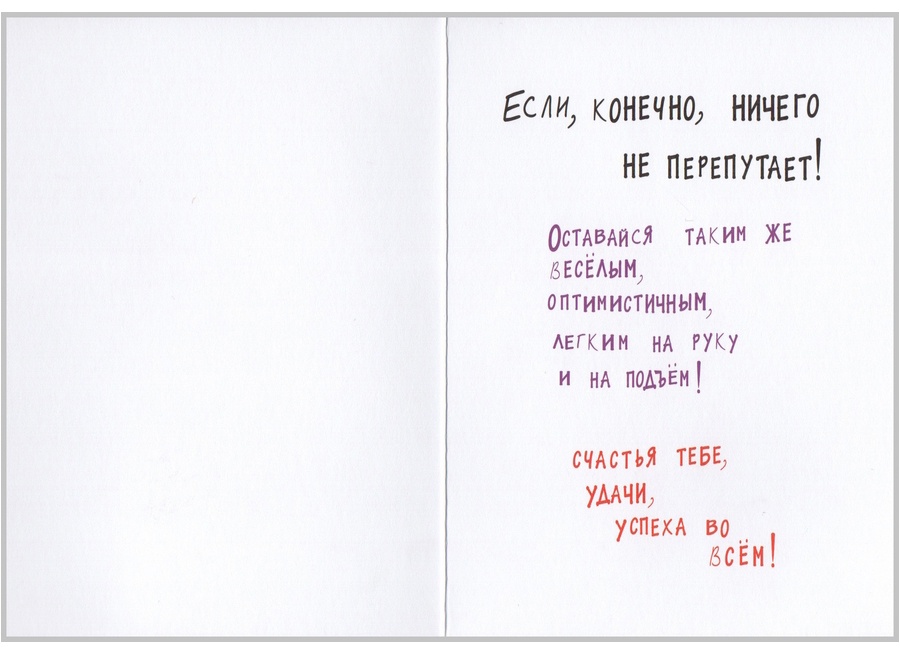 Если, конечно, ничего
не перепутает!
Оставайся таким же
весёлым,
оптимистичным,
легким на руку
и на подъём!
счастья тебе,
удачи,
успеха во
всём!